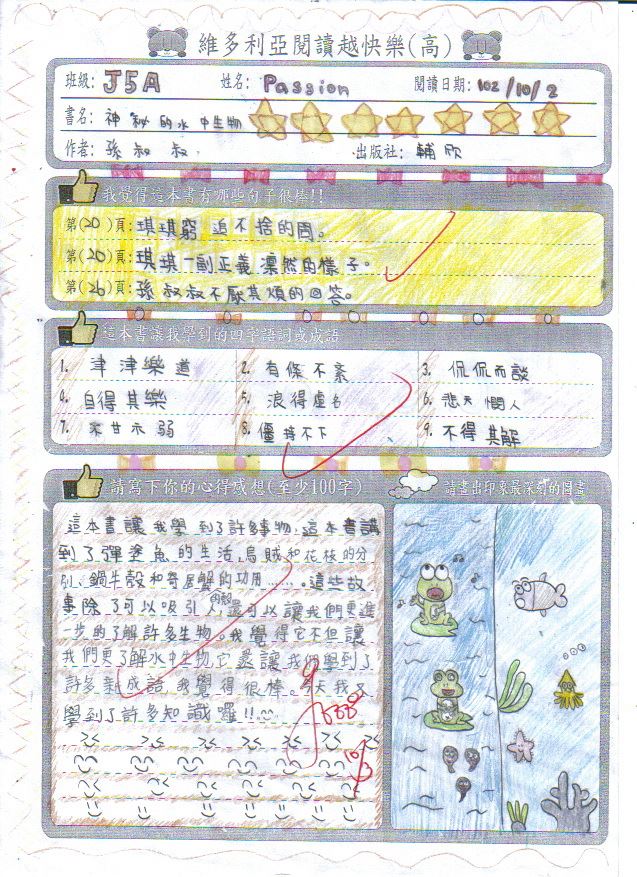 維多利亞閱讀越快樂(高)
班級: J5A 姓名: Passion 閱讀日期: 102/10/2
書名: 神秘的水中生物
作者: 孫叔叔 出版社: 輔欣
我覺得這本書有哪些句子很棒!!
第(20)頁: 琪琪窮追不捨的問。
第(20)頁: 琪琪一副正義凜然的樣子。
第(26)頁: 孫叔叔不厭其煩的回答。
這本書讓我學到的四字語詞或成語
1. 津津樂道 2. 有條不紊 3. 侃侃而談
4. 自得其樂 5. 浪得虛名 6. 悲天憫人
7. 不甘示弱 8. 僵持不下 9. 不得其解
請寫下你的心得感想(至少100字) 請畫出印象最深刻的圖畫
這本書讓我學到了許多事物,這本書講
到了彈塗魚的生活,烏賊和花枝的分
別、蝸牛殼和寄居蟹的殼的功用……。這些故
事除了可以吸引人,還可以讓我們更進
一步的了解許多生物。我覺得它不但讓
我們更了解水中生物,它還讓我們學到了
許多新成語,我覺得很棒。今天我又
學到了許多知識囉!!
10/3